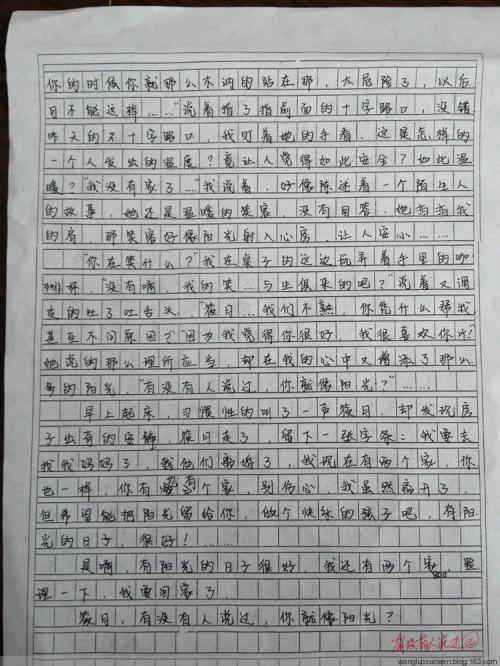 你的时候你就那么木讷的站在那，太危险了，以后
可不能这样……"说着指了指前面的十字路口，没错
昨天的不十字路口，我盯着她的手看，这是怎样的
一个人发出的温度？竟让人觉得如此安全？如此温
暖？"我没有家了…"我说着，好像陈述着一个陌生人
的故事，她还是温暖的笑容，没有回答，她拍拍我
的肩，那笑容好像阳光射入心房，让人安心……
"你在笑什么？"我在桌子的这边玩弄着手里的咖
啡杯，"没有啊，我的笑…与生俱来的吧？"说着又调
皮的吐了吐舌头，"筱日…我们不熟，你凭什么帮我
甚至不问原因？""因为我觉得你很好，我很喜欢你
她说的那么理所应当，却在我的心中又增添了那么
多的阳光，"有没有人说过，你就像阳光？"……
早上起床，习惯性的叫了一声筱日，却发现房
子出奇的安静，筱日走了，留下一张字条：我要去
找我妈妈了，我他们离婚了，我现在有两个家，你
也一样，你有两个家，别伤心，我虽然离开了，
但希望能把阳光留给你，做个快乐的孩子吧，有阳
光的日子，很好！……
是啊，有阳光的日子很好，我还有两个家，整
理一下，我要回家了。
800
筱日，有没有人说过，你就像阳光？
有没有人说过②
wangluozuowen.blog.163.com